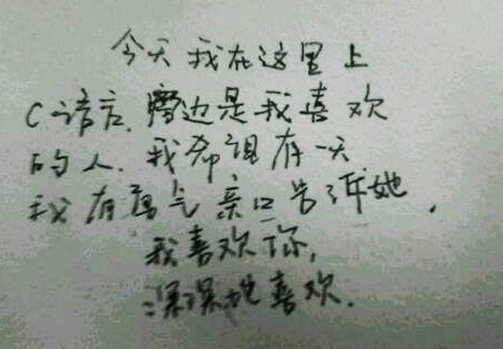 今天我在这里上
C语言.旁边是我喜欢
的人.我希望有一天
我有勇气亲口告诉她,
我喜欢你,
深深地喜欢.